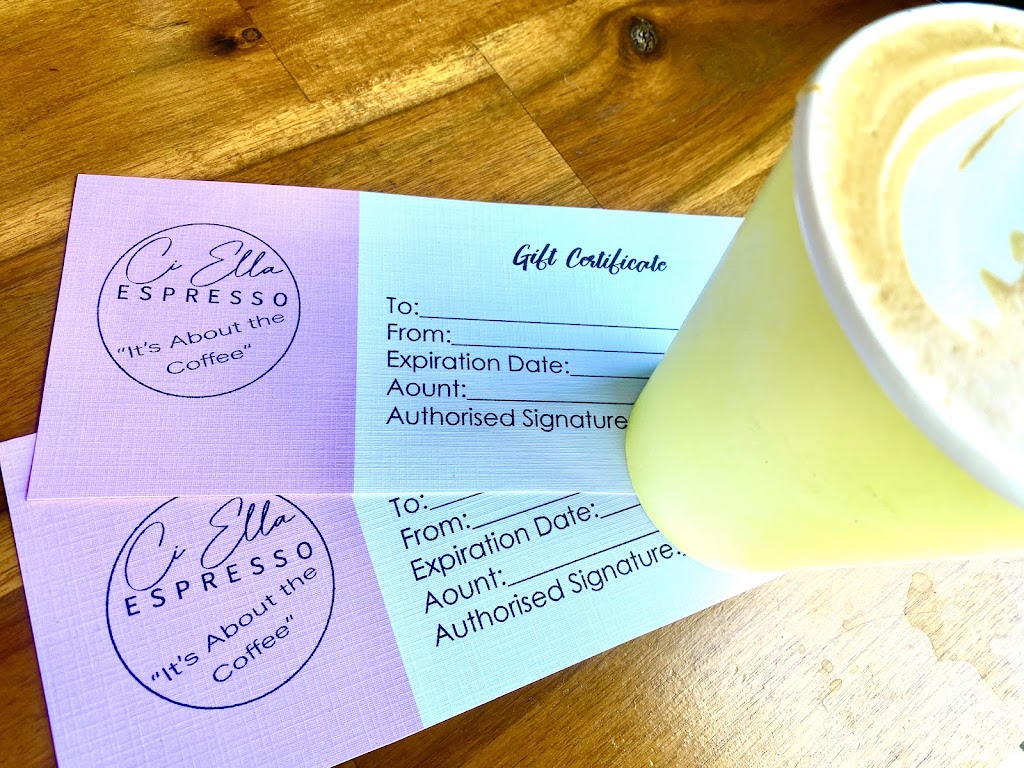 Ci Ella
ESPRESSO
"It's About the
Coffee"
Gift Certificate
To:
From:
Expiration Date:
Aount:
Authorised Signature
Ci Ella
ESPRESSO
"It's About the
Coffee"
To:
From:
Expiration Date:
Aount:
Authorised Signature: